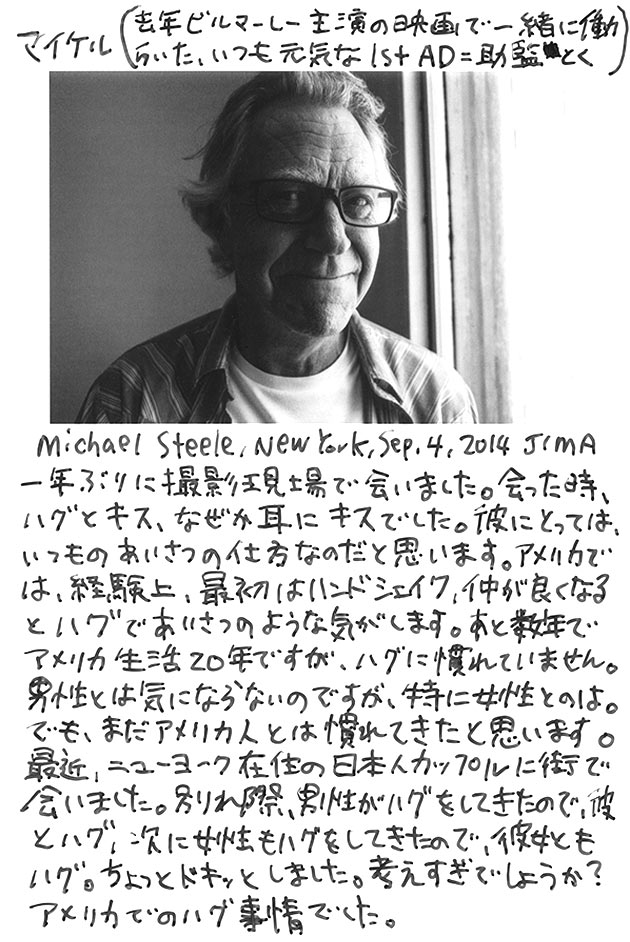 マイケル(去年ビルマーレー主演の映画で一緒に働
らいた、いつも元気な1st AD=助監とく)
Michael Steele, New York, Sep. 4, 2014 JIMA
一年ぶりに撮影現場で会いました。会った時、
ハグとキス、なぜか耳にキスでした。彼にとっては、
いつものあいさつの仕方なのだと思います。アメリカで
は、経験上、最初はハンドシェイク、仲が良くなる
とハグであいさつのような気がします。あと数年で
アメリカ生活20年ですが、ハグに慣れていません。
男性とは気にならないのですが、特に女性とのは。
でも、まだアメリカ人とは慣れてきたと思います。
最近、ニューヨーク在住の日本人カップルに街で
会いました。別れ際、男性がハグをしてきたので、彼
とハグ、次に女性もハグをしてきたので、彼女とも
ハグ。ちょっとドキッとしました。考えすぎでしょうか?
アメリカでのハグ事情でした。